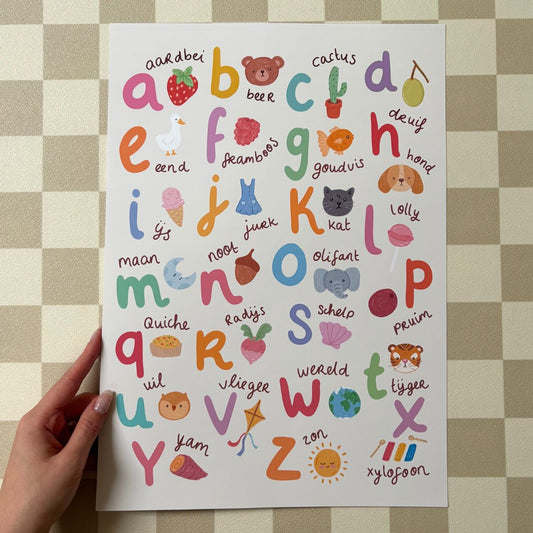 aardbei
a
b
beer
cactus
c
d
druif
e
eend
f
framboos
g
goudvis
h
hond
i
ijs
j
jurk
K
kat
l
lolly
maan
m
noot
n
o
olifant
p
pruim
Quiche
q
Radijs
R
S
Schelp
t
tijger
uil
u
vlieger
v
wereld
w
x
xylofoon
y
yam
z
zon